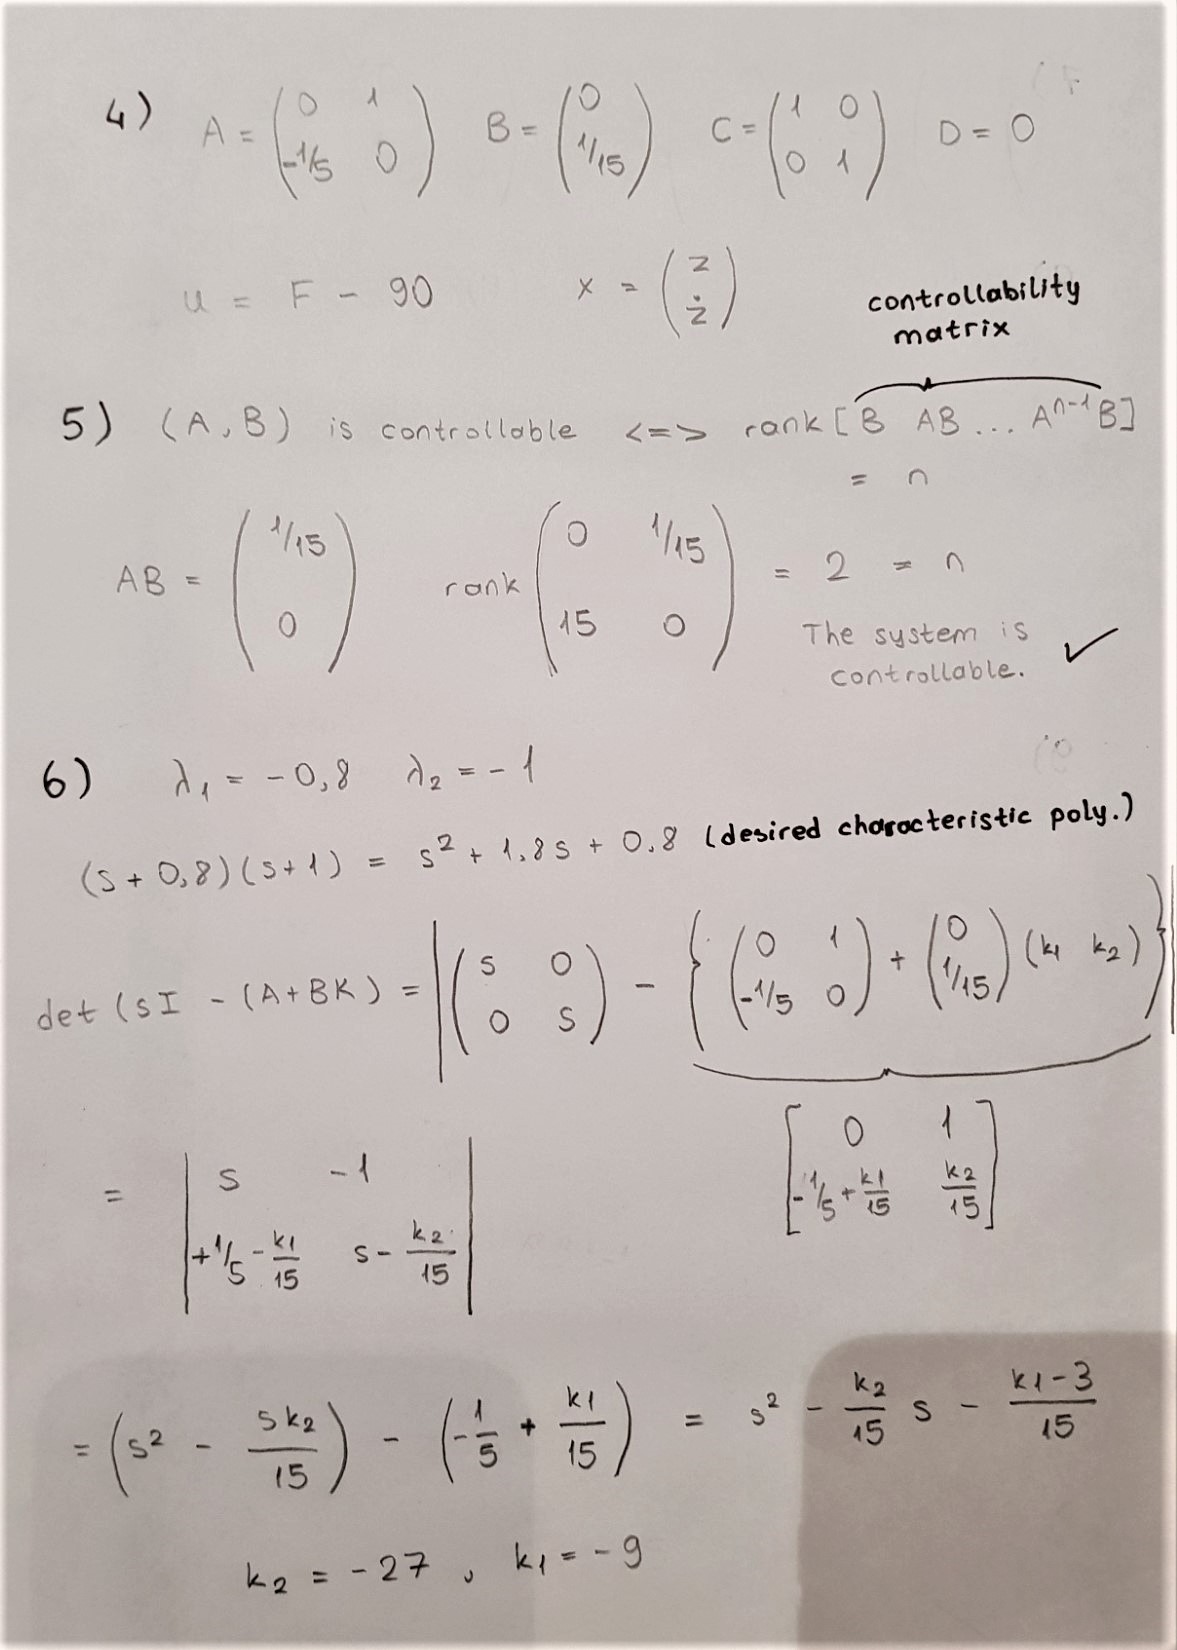 4) A = (0 1 -1/5 0) B = (0 1/15) C = (1 0 0 1) D = 0
u = F - 90 x = (z ż)
controllability
matrix
5) (A, B) is controllable <=> rank [B AB ... A^{n-1} B]
= n
AB = (1/15 0) rank (0 1/15 15 0) = 2 = n
The system is
controllable. ✓
6) λ₁ = -0,8 λ₂ = -1
(s + 0,8)(s + 1) = s² + 1,8s + 0,8 (desired characteristic poly.)
det (sI - (A+BK) = |(s 0 0 s) - {(0 1 -1/5 0) + (0 1/15) (k1 k2)}|
[0 1 -1/5 + k1/15 k2/15]
= |s -1 +1/5 - k1/15 s - k2/15|
= (s² - sk2/15) - (-1/5 + k1/15) = s² - k2/15 s - k1-3/15
k2 = -27, k1 = -9